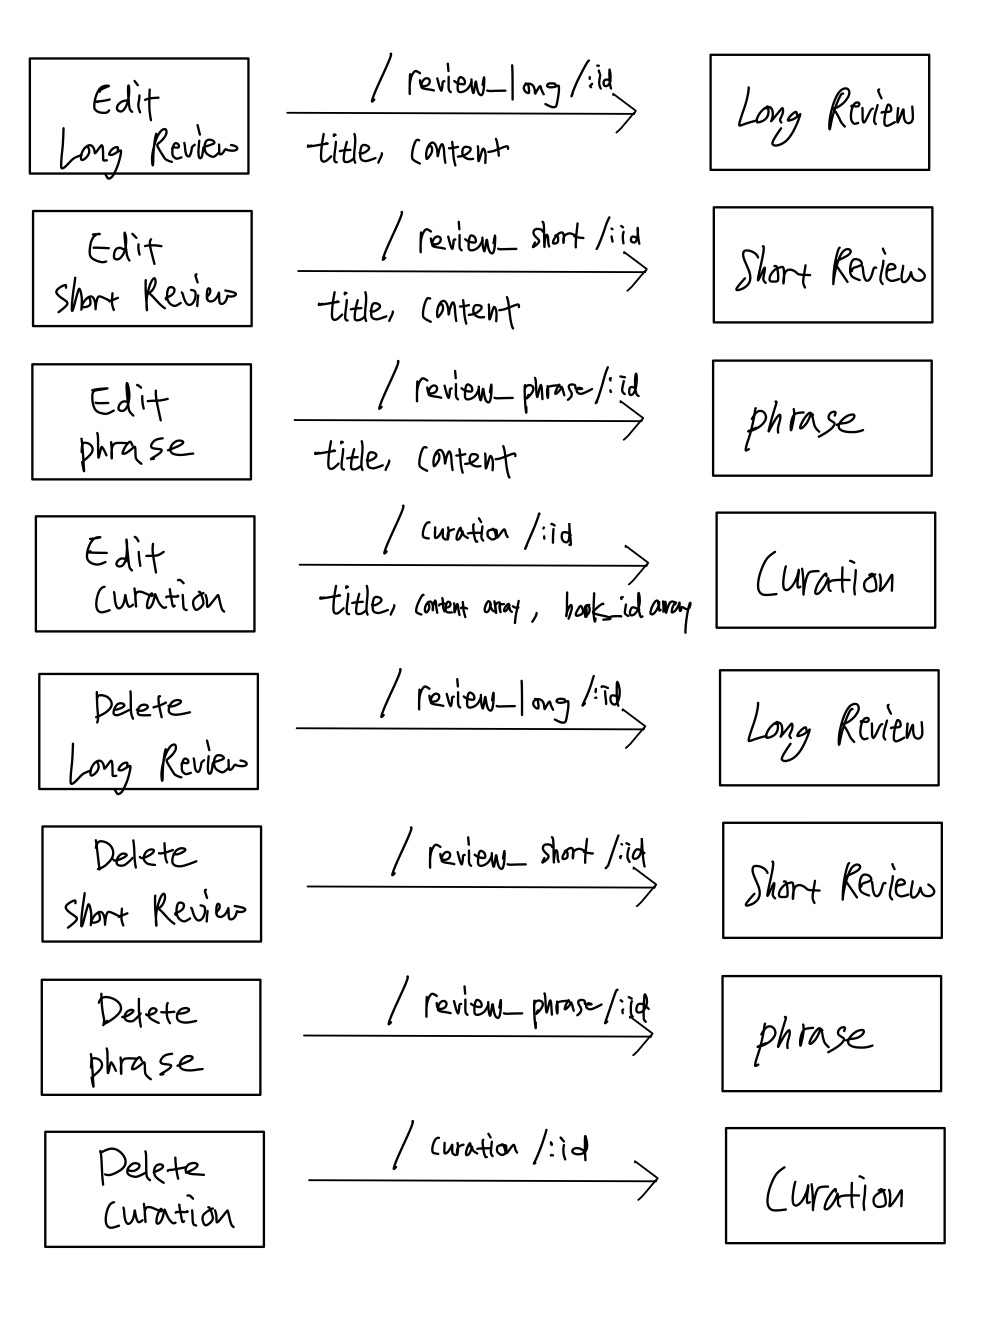 Edit
Long Review
/ review_long /:id
title, content
Long Review
Edit
Short Review
/ review_ short /:id
title, content
Short Review
Edit
phrase
/ review_ phrase/:id
title, content
phrase
Edit
Curation
/ curation /:id
title, content array, book_id array
Curation
Delete
Long Review
/ review_long /:id
Long Review
Delete
Short Review
/ review_ short /:id
Short Review
Delete
phrase
/ review_ phrase/:id
phrase
Delete
Curation
/ curation /:id
Curation